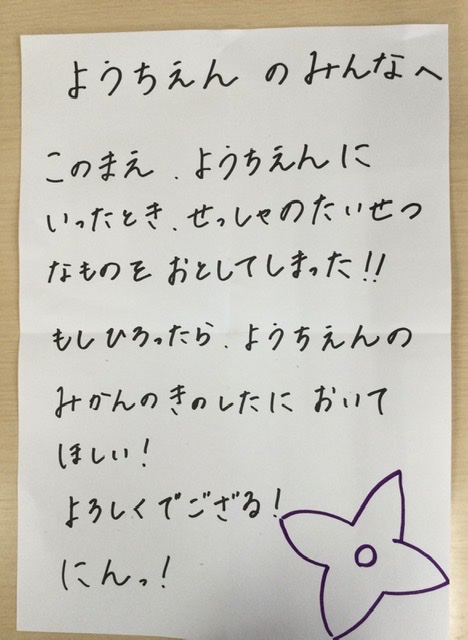 ようちえん のみんなへ
このまえ、ようちえんに
いったとき、せっしゃのたいせつ
なものを おとしてしまった!!
もしひろったら、ようちえんの
みかんのきのしたに おいて
ほしい!
よろしくでござる!
にんっ!